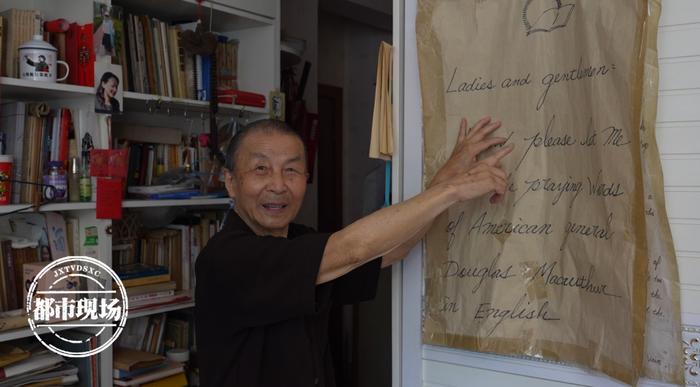 Ladies and gentlemen:
please let Me
praying Words
of American general
Douglas Macarthur
in English
JXTVDSXC
都市现场